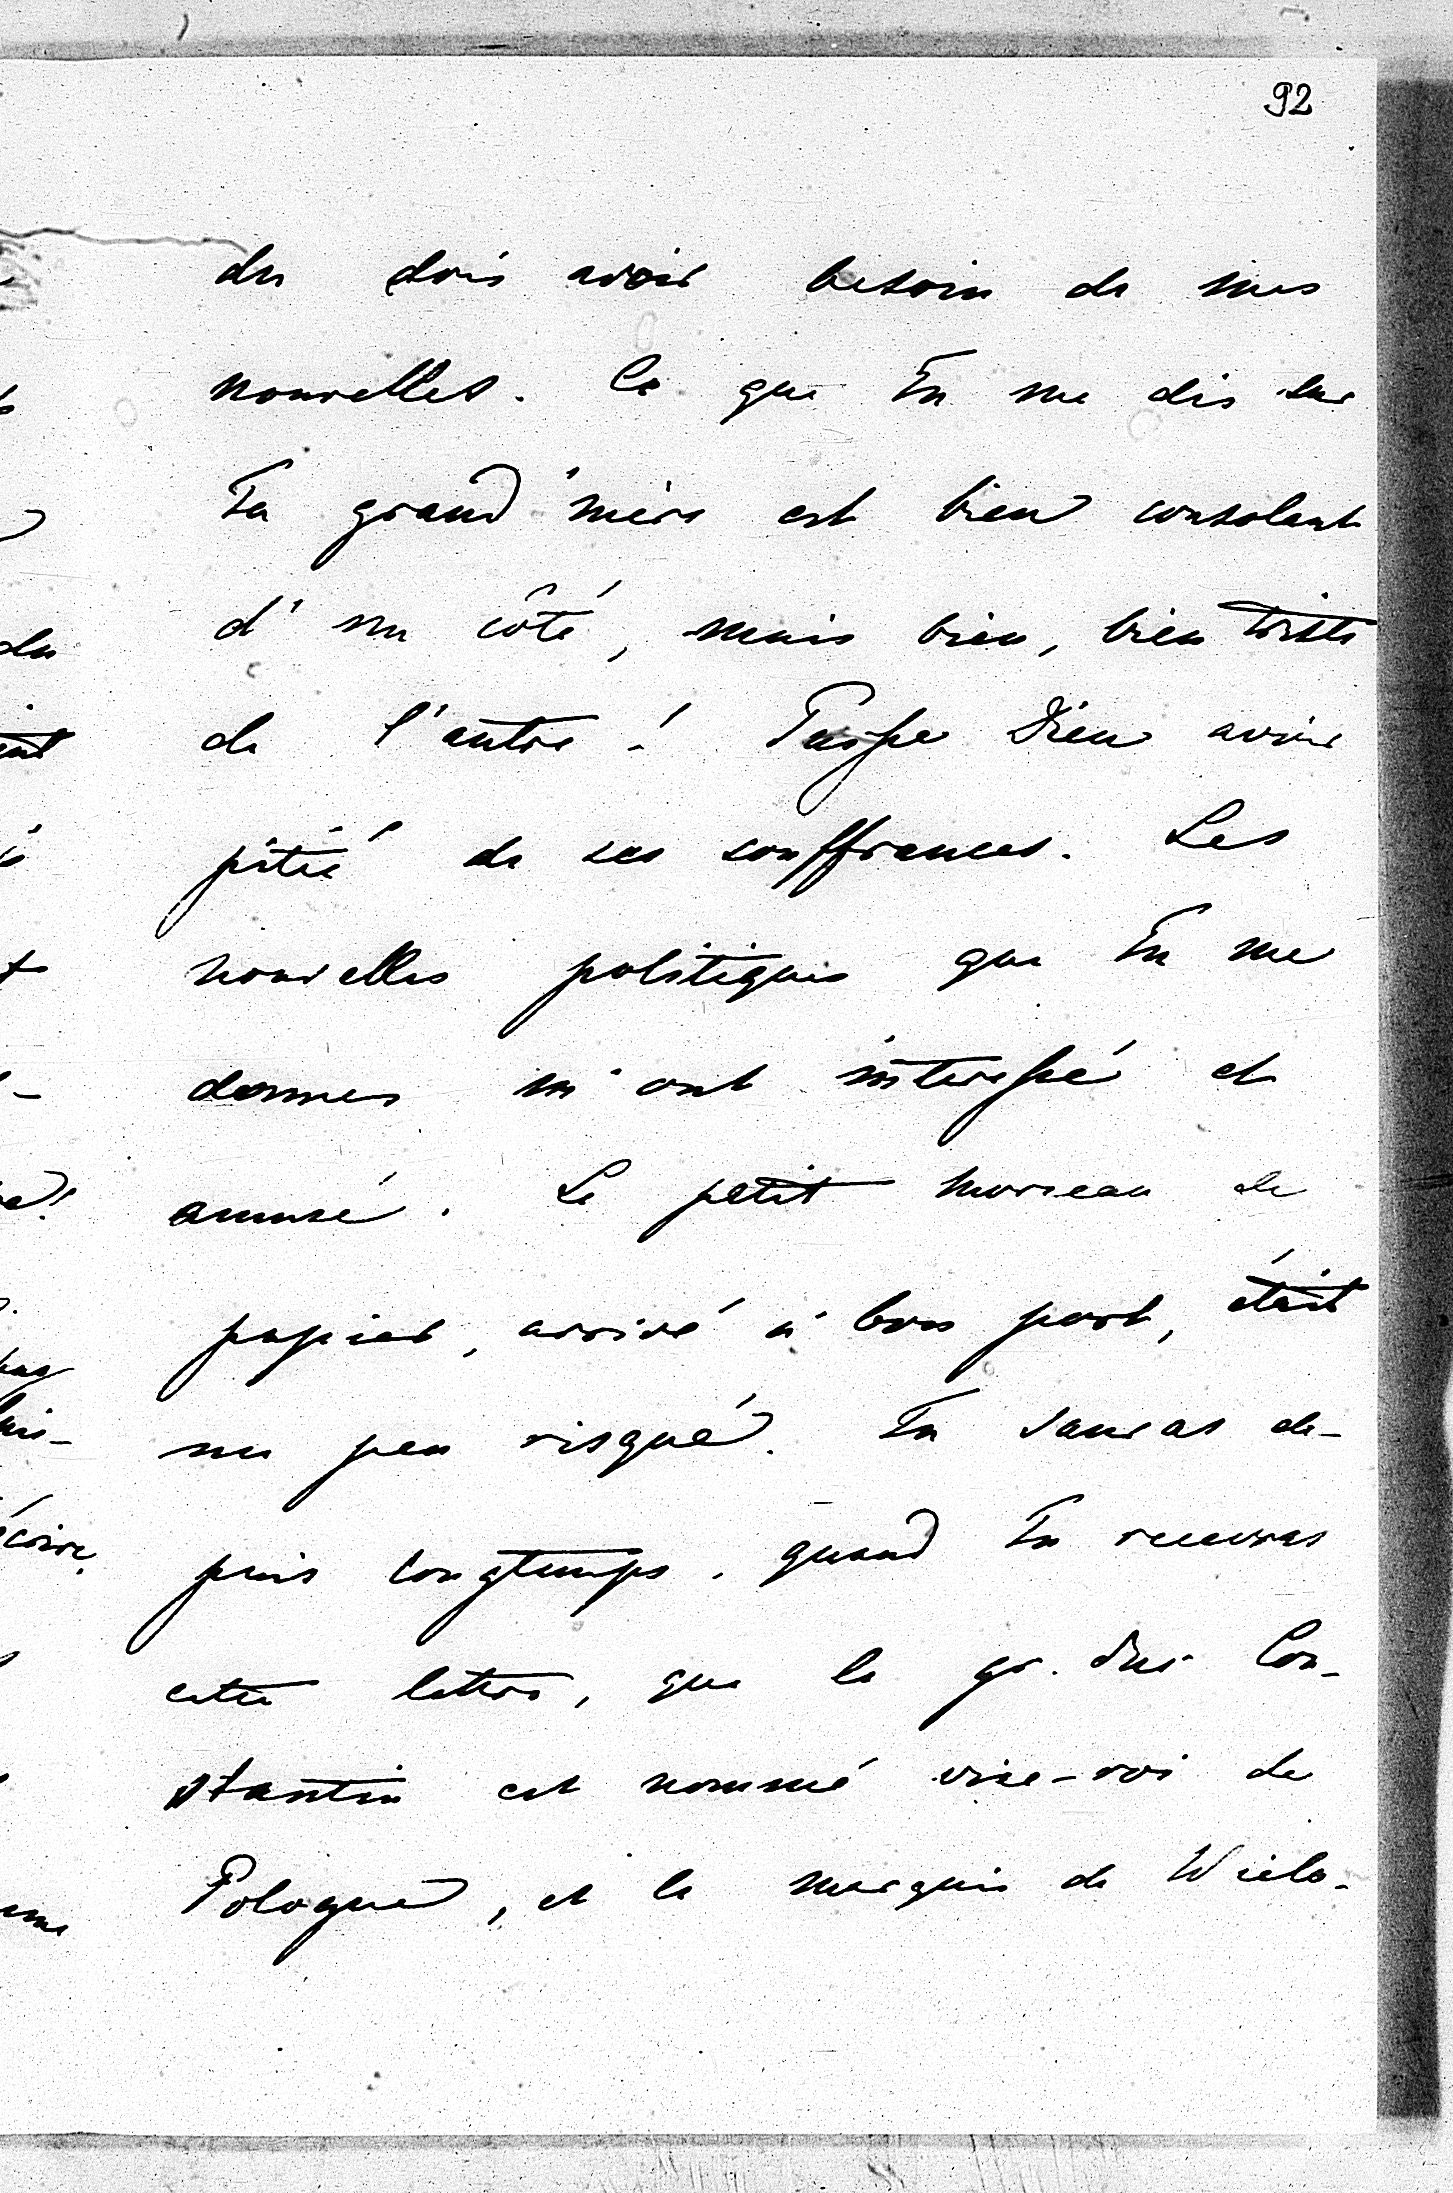 92
du dois avoir besoin de mes
nouvelles. Ce que Tu me dis sur
Ta grand'mère est bien consolant
d'un côté, mais bien, bien triste
de l'autre! Puisse Dieu avoir
pitié de ses souffrances. Les
nouvelles politiques que Tu me
donnes m'ont interessé et
amusé. Le petit morceau de
papier, arrivé à bon port, était
un peu risqué. Tu sauras de-
puis longtemps, quand Tu recevras
cette lettre, que le gr. duc Con-
stantin est nommé vice-roi de
Pologne, et le marquis de Wielo-